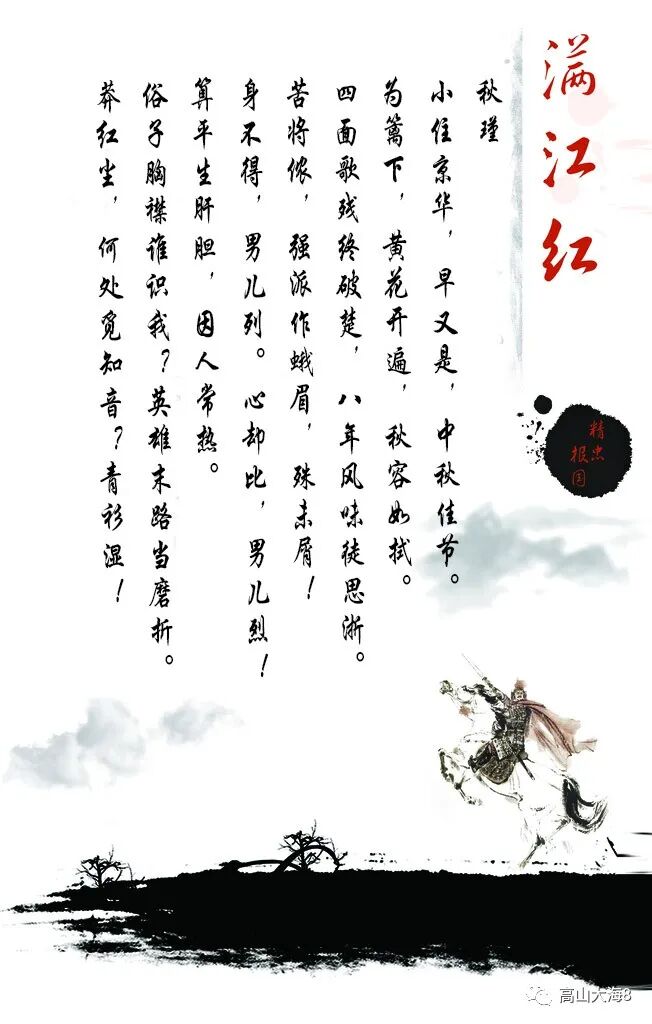 满江红
秋瑾
小住京华，早又是，中秋佳节。
为篱下，黄花开遍，秋容如拭。
四面歌残终破楚，八年风味徒思浙。
苦将侬，强派作蛾眉，殊未屑！
身不得，男儿列。心却比，男儿烈！
算平生肝胆，因人常热。
俗子胸襟谁识我？英雄末路当磨折。
莽红尘，何处觅知音？青衫湿！
精忠
报国
高山大海8